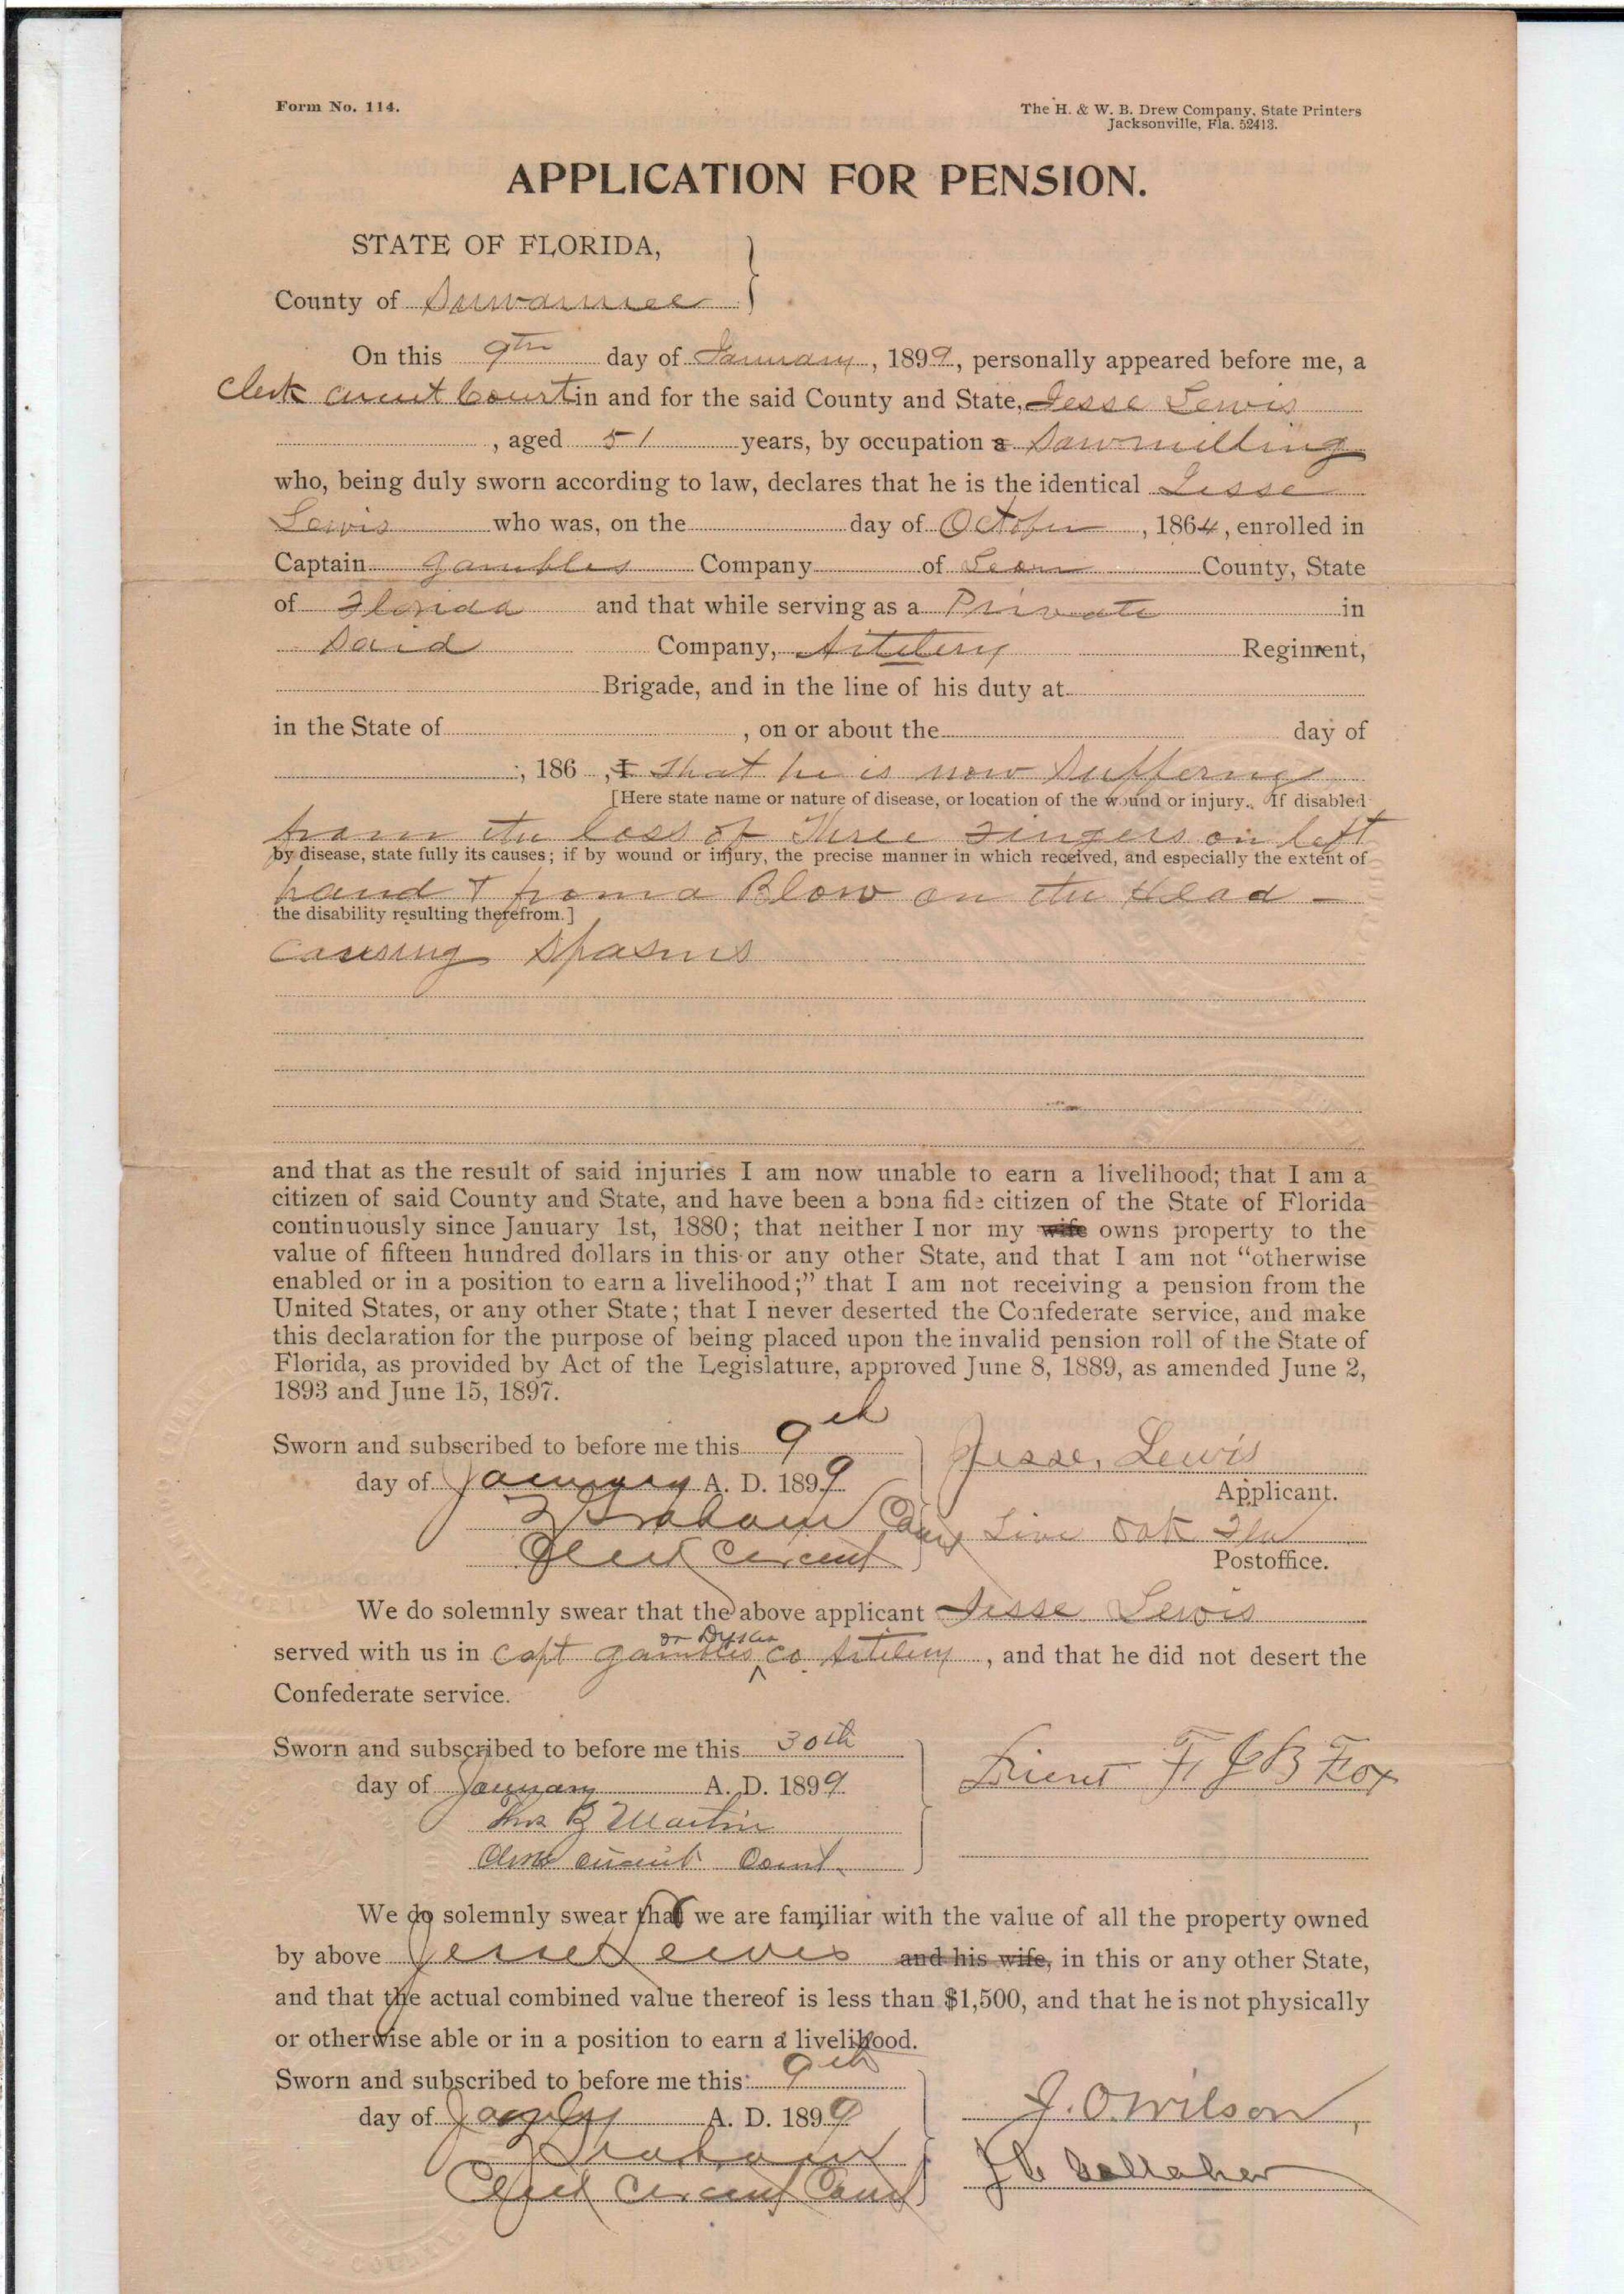 Form No. 114.
The H. & W. B. Drew Company, State Printers
Jacksonville, Fla. 52413.
APPLICATION FOR PENSION.
STATE OF FLORIDA,
County of Suwannee
On this 9th day of January, 1899, personally appeared before me, a
Clerk Circuit Court in and for the said County and State, Jesse Lewis
, aged 51 years, by occupation a Sawmilling
who, being duly sworn according to law, declares that he is the identical Jesse
Lewis who was, on the day of October, 1864, enrolled in
Captain Gambles Company of Leon County, State
of Florida and that while serving as a Private in
Said Company, Artilery Regiment,
Brigade, and in the line of his duty at
in the State of , on or about the day of
, 186 , I That he is now Suffering
[Here state name or nature of disease, or location of the wound or injury. If disabled
from the loss of Three Fingers on left
by disease, state fully its causes; if by wound or injury, the precise manner in which received, and especially the extent of
hand & from a Blow on the Head -
the disability resulting therefrom.]
causing Spasms
and that as the result of said injuries I am now unable to earn a livelihood; that I am a
citizen of said County and State, and have been a bona fide citizen of the State of Florida
continuously since January 1st, 1880; that neither I nor my wife owns property to the
value of fifteen hundred dollars in this or any other State, and that I am not "otherwise
enabled or in a position to earn a livelihood;" that I am not receiving a pension from the
United States, or any other State; that I never deserted the Confederate service, and make
this declaration for the purpose of being placed upon the invalid pension roll of the State of
Florida, as provided by Act of the Legislature, approved June 8, 1889, as amended June 2,
1893 and June 15, 1897.
Sworn and subscribed to before me this 9th
day of January A. D. 1899
Jesse, Lewis
Applicant.
Graham
Clerk Circuit Court
Live Oak Fla
Postoffice.
We do solemnly swear that the above applicant Jesse Lewis
or Dykes
served with us in Capt Gambles Co. Artilery, and that he did not desert the
Confederate service.
Sworn and subscribed to before me this 30th
day of January A. D. 1899
Lieut F J B Fox
Martin
Clerk circuit Court
We do solemnly swear that we are familiar with the value of all the property owned
by above Jesse Lewis and his wife, in this or any other State,
and that the actual combined value thereof is less than $1,500, and that he is not physically
or otherwise able or in a position to earn a livelihood.
Sworn and subscribed to before me this 9th
day of A. D. 1899
J. O. Wilson,
Graham
Clerk Circuit Court
Gallaher